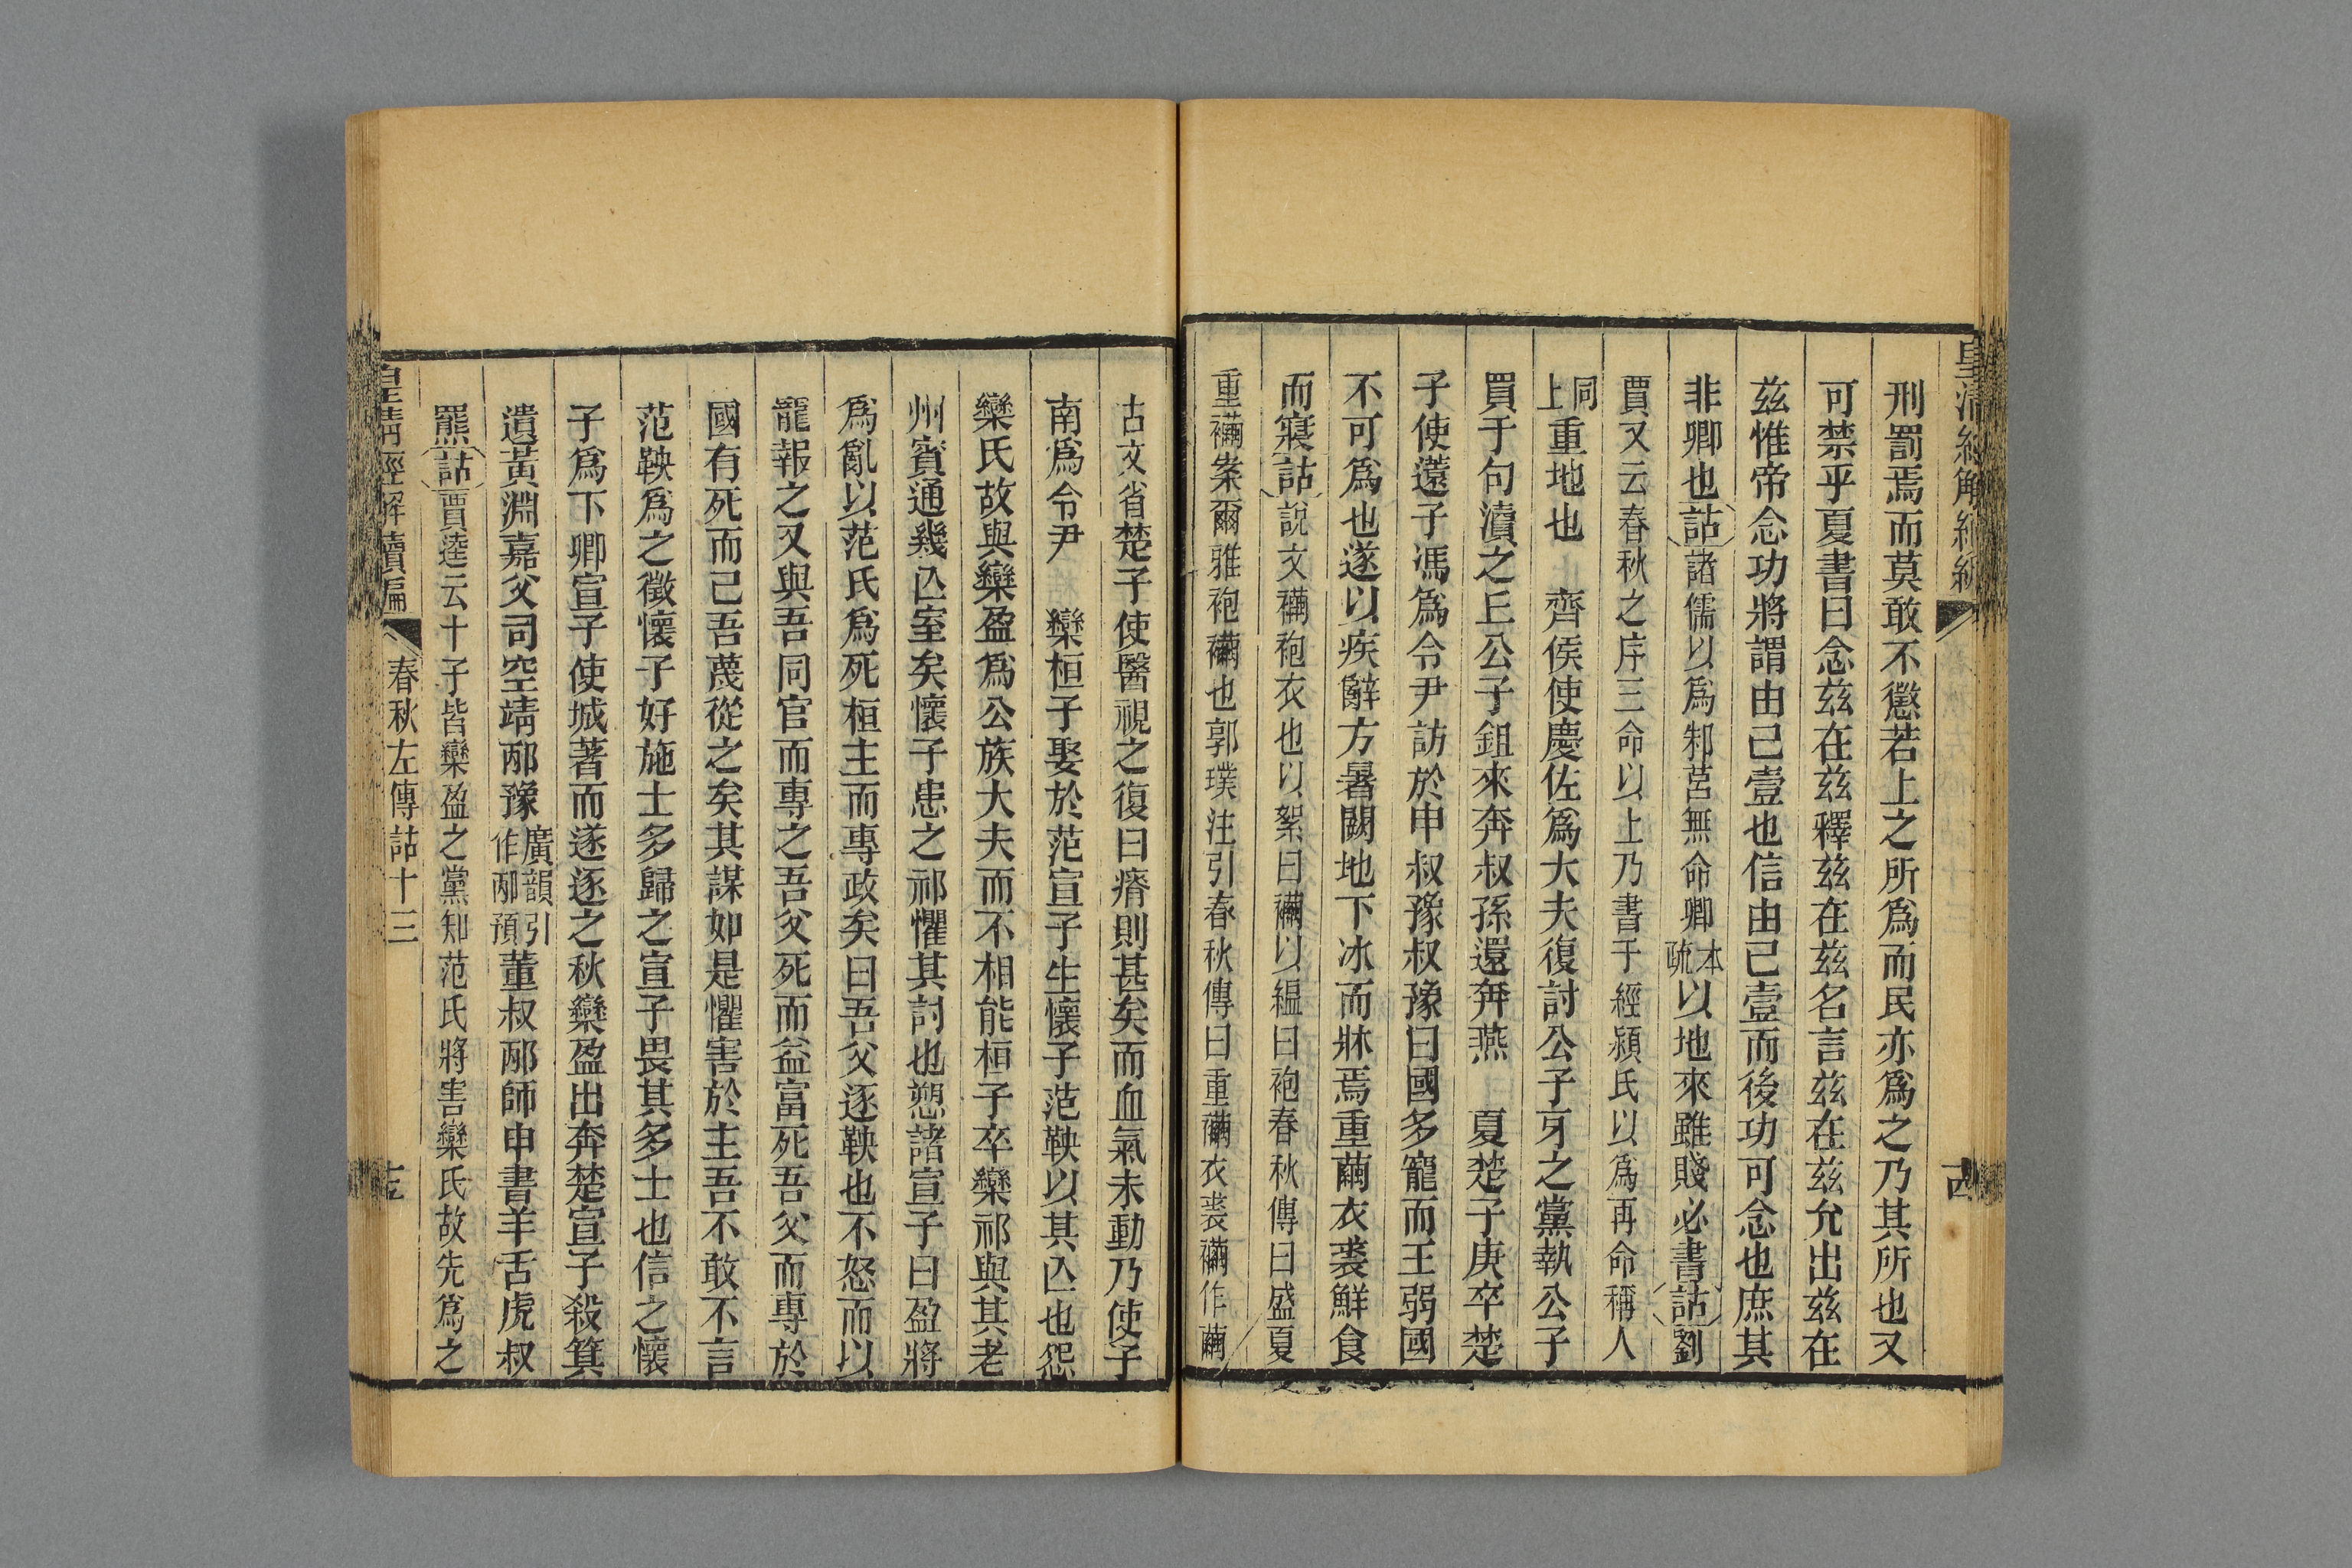 皇清經解續編
刑罰焉而莫敢不懲若上之所爲而民亦爲之乃其所也又
可禁乎夏書曰念茲在茲釋茲在茲名言茲在茲允出茲在
茲惟帝念功將謂由己壹也信由己壹而後功可念也庶其
非卿也詁諸儒以爲邾莒無命卿本疏以地來雖賤必書詁劉
賈又云春秋之序三命以上乃書于經潁氏以爲再命稱人
同上重地也　齊侯使慶佐爲大夫復討公子牙之黨執公子
買于句瀆之丘公子鉏來奔叔孫還奔燕　夏楚子庚卒楚
子使薳子馮爲令尹訪於申叔豫叔豫曰國多寵而王弱國
不可爲也遂以疾辭方暑闕地下冰而牀焉重繭衣裘鮮食
而寢詁說文襺袍衣也以絮曰襺以緼曰袍春秋傳曰盛夏
重襺案爾雅袍襺也郭璞注引春秋傳曰重襺衣裘襺作繭
古文省楚子使醫視之復曰瘠則甚矣而血氣未動乃使子
南爲令尹　欒桓子娶於范宣子生懷子范鞅以其亾也怨
欒氏故與欒盈爲公族大夫而不相能桓子卒欒祁與其老
州賓通幾亾室矣懷子患之祁懼其討也愬諸宣子曰盈將
爲亂以范氏爲死桓主而專政矣曰吾父逐鞅也不怒而以
寵報之又與吾同官而專之吾父死而益富死吾父而專於
國有死而已吾蔑從之矣其謀如是懼害於主吾不敢不言
范鞅爲之徵懷子好施士多歸之宣子畏其多士也信之懷
子爲下卿宣子使城著而遂逐之秋欒盈出奔楚宣子殺箕
遺黃淵嘉父司空靖邴豫廣韻引作邴預董叔邴師申書羊舌虎叔
羆詁賈逵云十子皆欒盈之黨知范氏將害欒氏故先爲之
皇清經解續編　春秋左傳詁十三